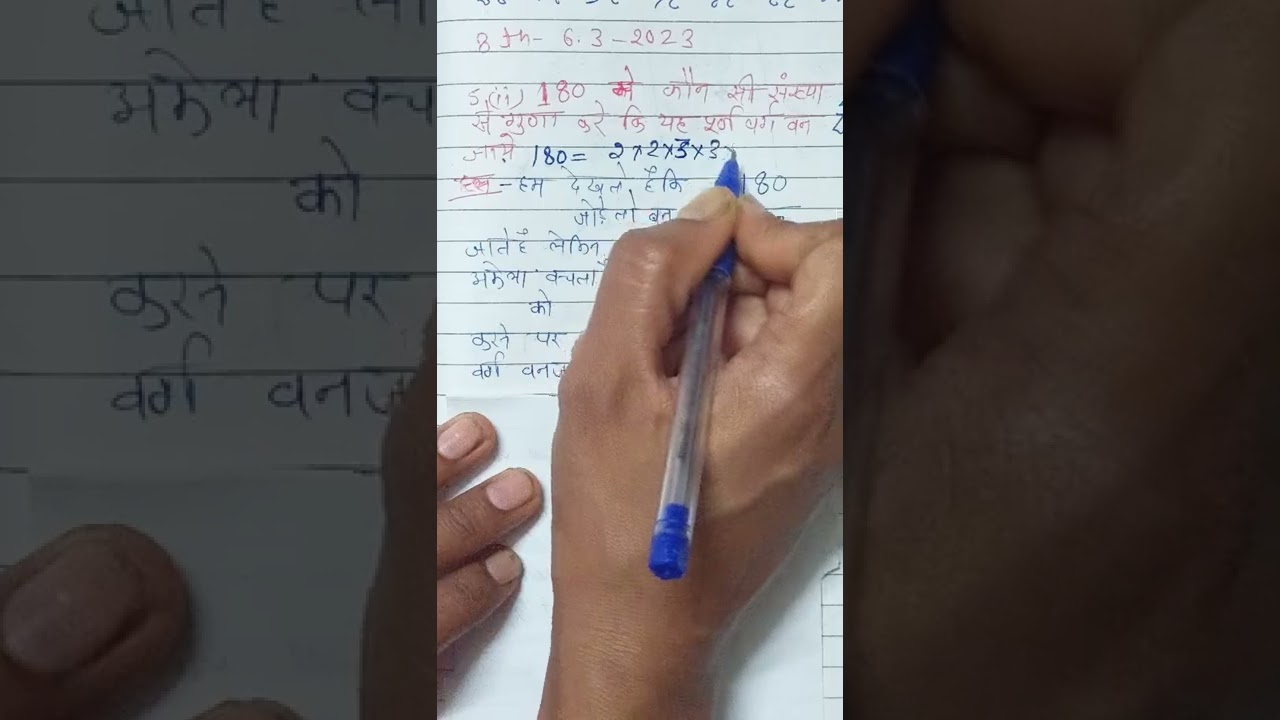 8th- 6.3-2023
5.(ii) 180 को कौन सी संख्या
से गुणा करे कि यह पूर्ण वर्ग बन
जाये 180= 2×2×3×3×
हल - हम देखते हैकि 180
जोड़े तो बन
जाते है लेकिन
अकेला बचता
को
करने पर
वर्ग बनज